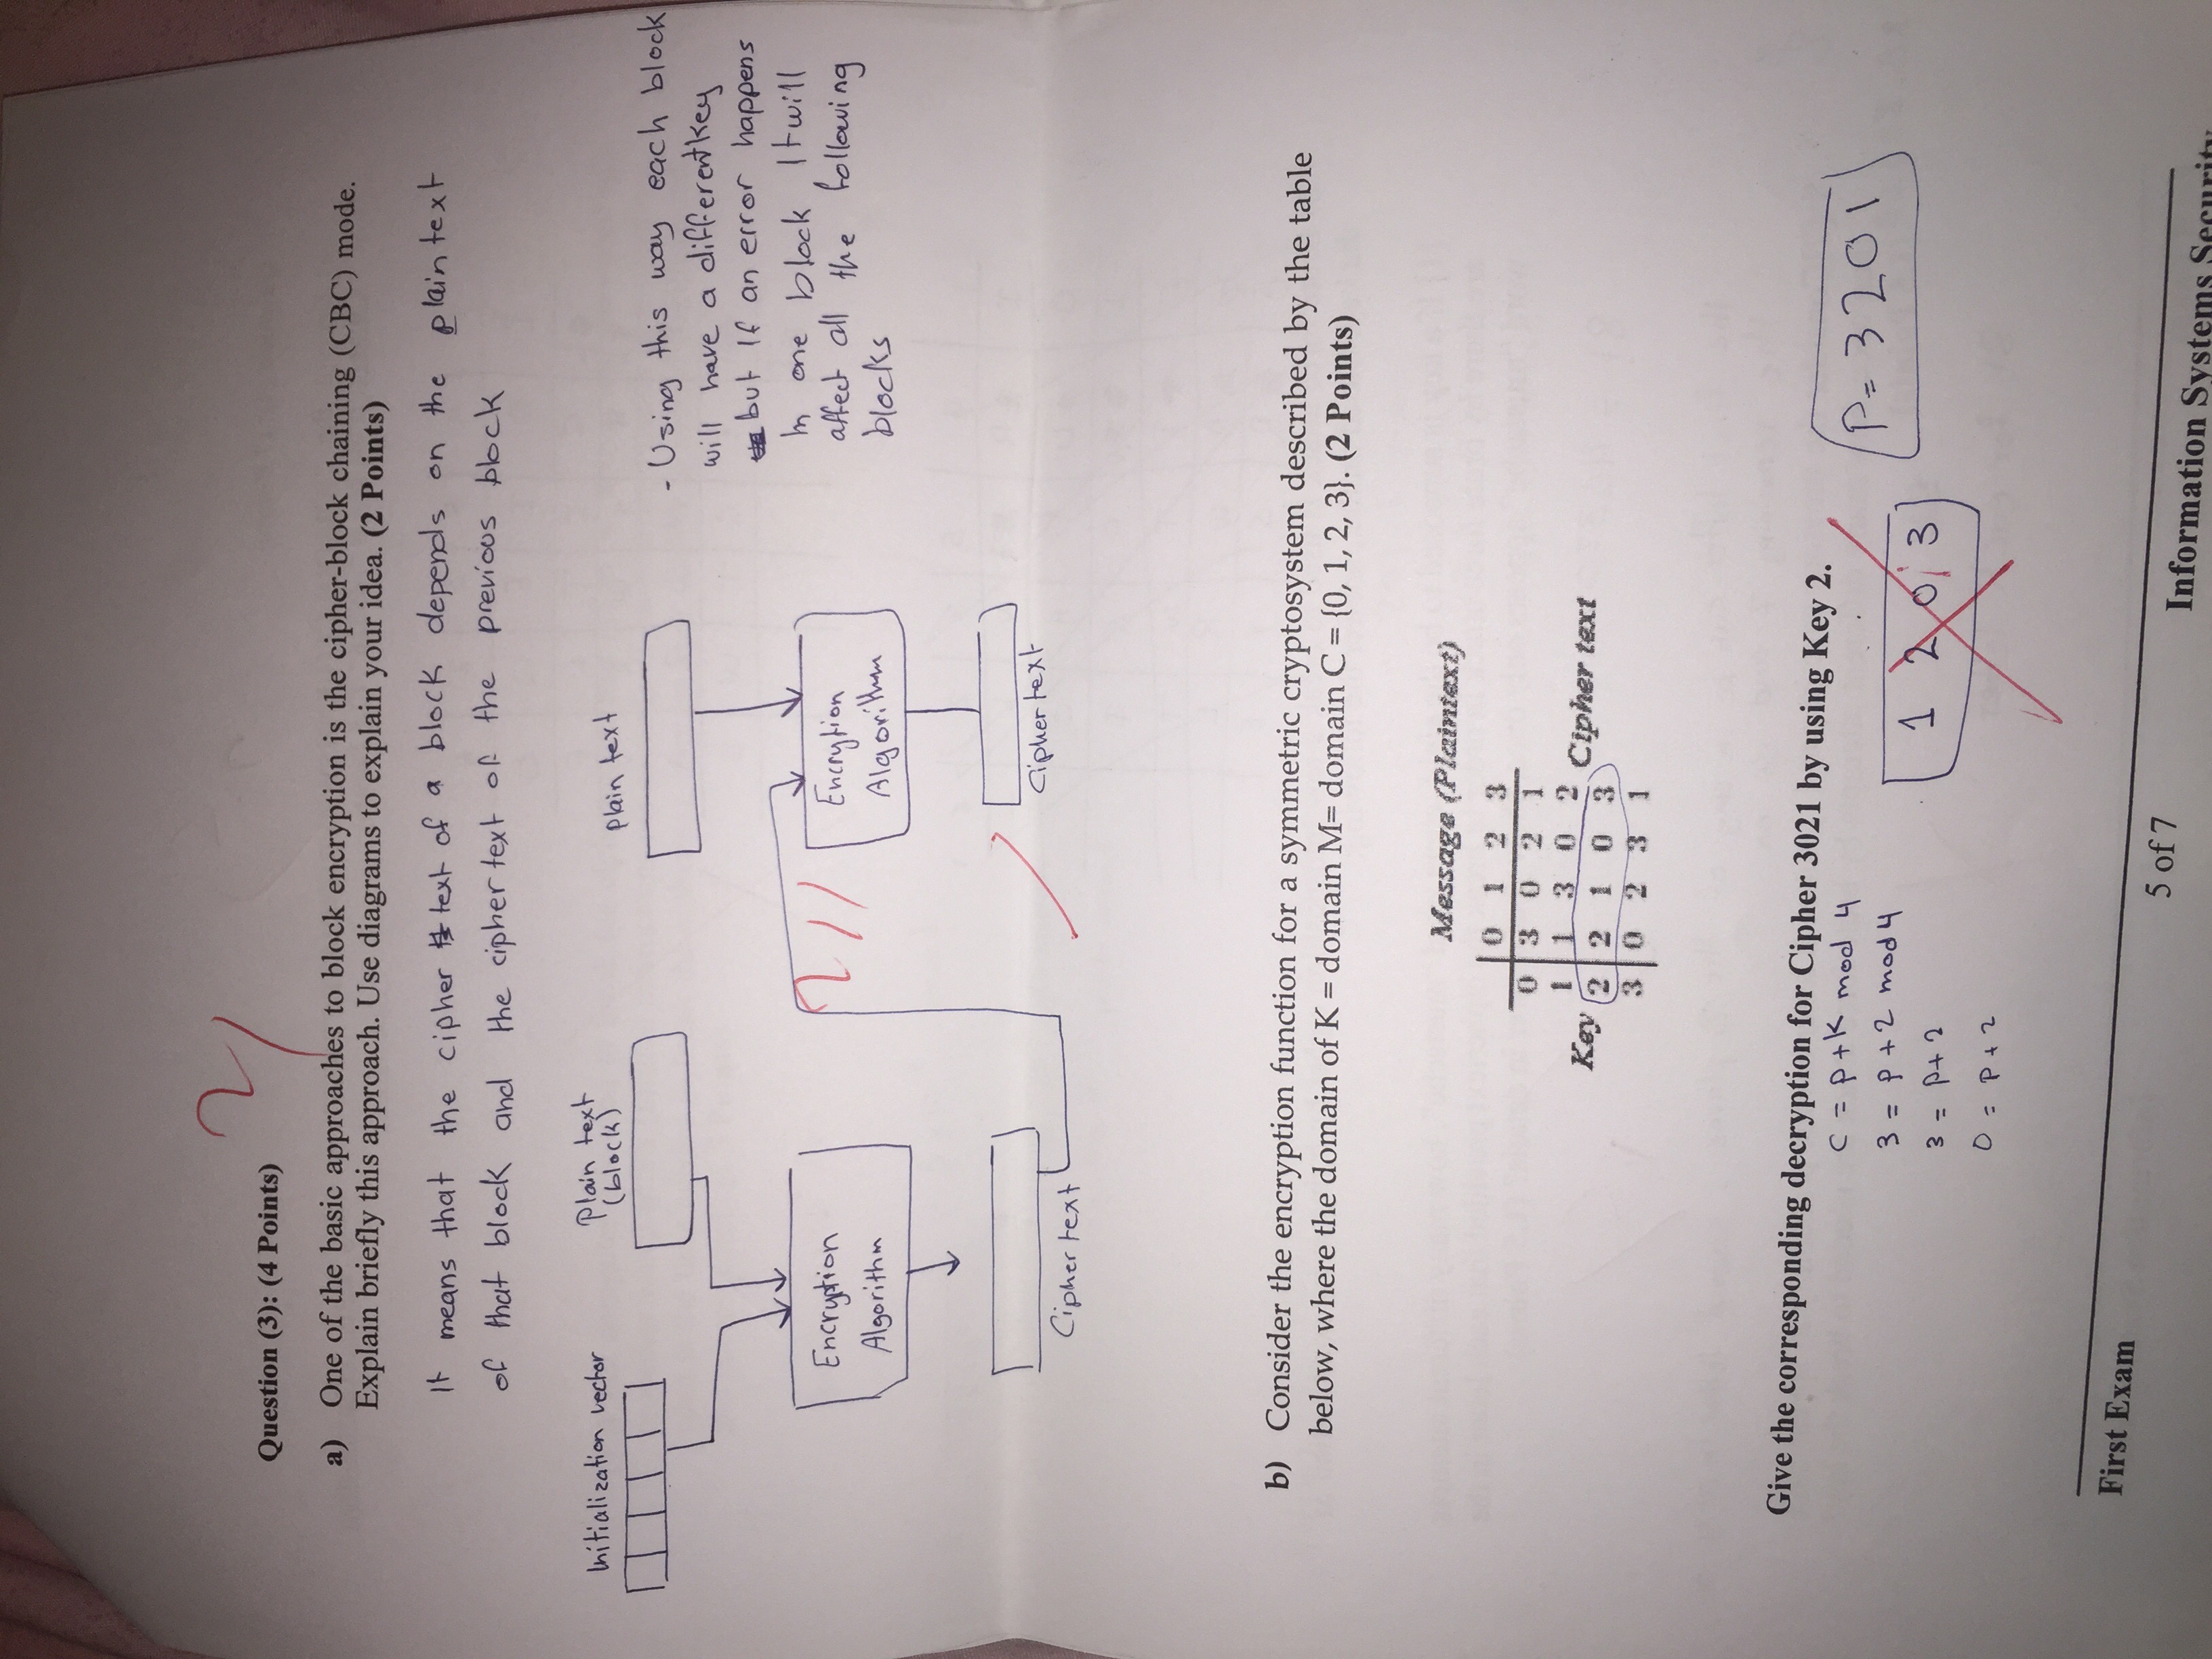 2/
Question (3): (4 Points)
a) One of the basic approaches to block encryption is the cipher-block chaining (CBC) mode.
Explain briefly this approach. Use diagrams to explain your idea. (2 Points)
It means that the cipher text of a block depends on the plain text
of that block and the cipher text of the previous block
Initialization vector
Plain text
(block)
plain text
Encryption
Algorithm
Cipher text
2//
Encrytion
Algorithm
Cipher text
- Using this way each block
will have a different key
but If an error happens
In one block It will
affect all the following
blocks
b) Consider the encryption function for a symmetric cryptosystem described by the table
below, where the domain of K = domain M= domain C = {0, 1, 2, 3}. (2 Points)
Message (Plaintext)
0 1 2 3
0 3 0 2 1
1 1 3 0 2
Key Cipher text
2 2 1 0 3
3 0 2 3 1
Give the corresponding decryption for Cipher 3021 by using Key 2.
C = P+K mod 4
3 = P+2 mod 4
3 = P+2
0 = P+2
1 2 0 3
P= 3201
First Exam
5 of 7
Information Systems Security